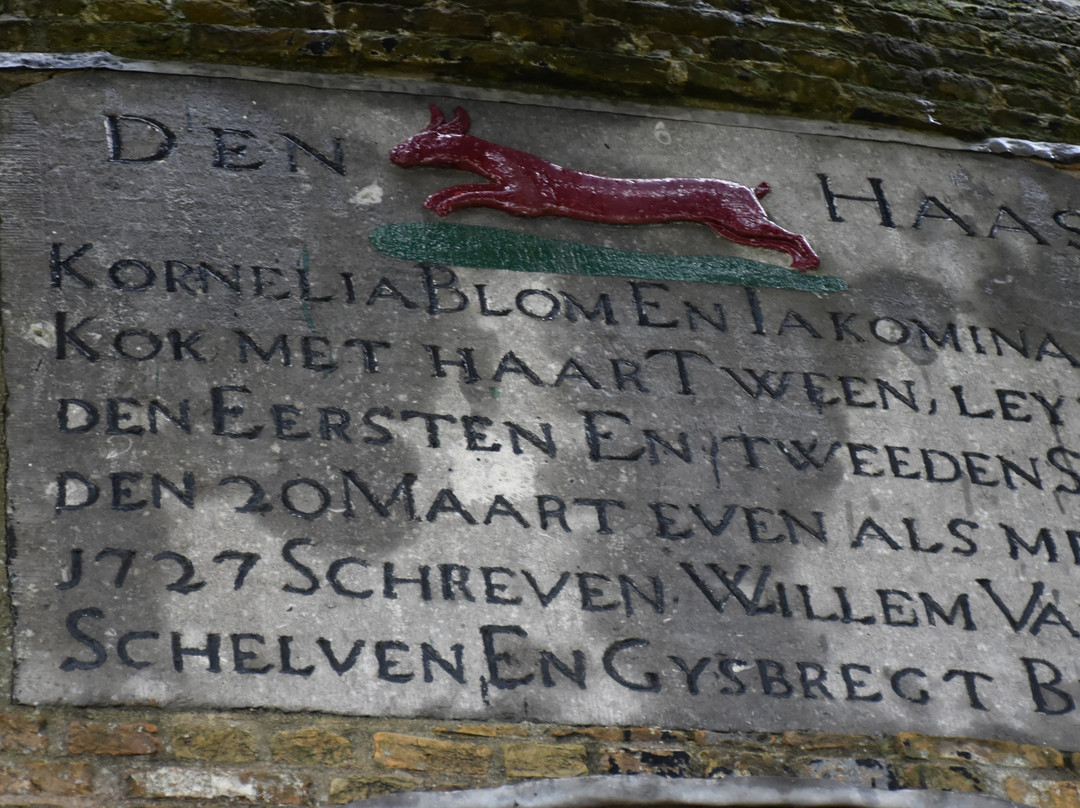 DEN HAAS
KORNELIA BLOM EN IAKOMINA
KOK MET HAAR TWEEN, LEY
DEN EERSTEN EN TWEEDEN S
DEN 20 MAART EVEN ALS ME
1727 SCHREVEN WILLEM VA
SCHELVEN EN GYSBREGT B